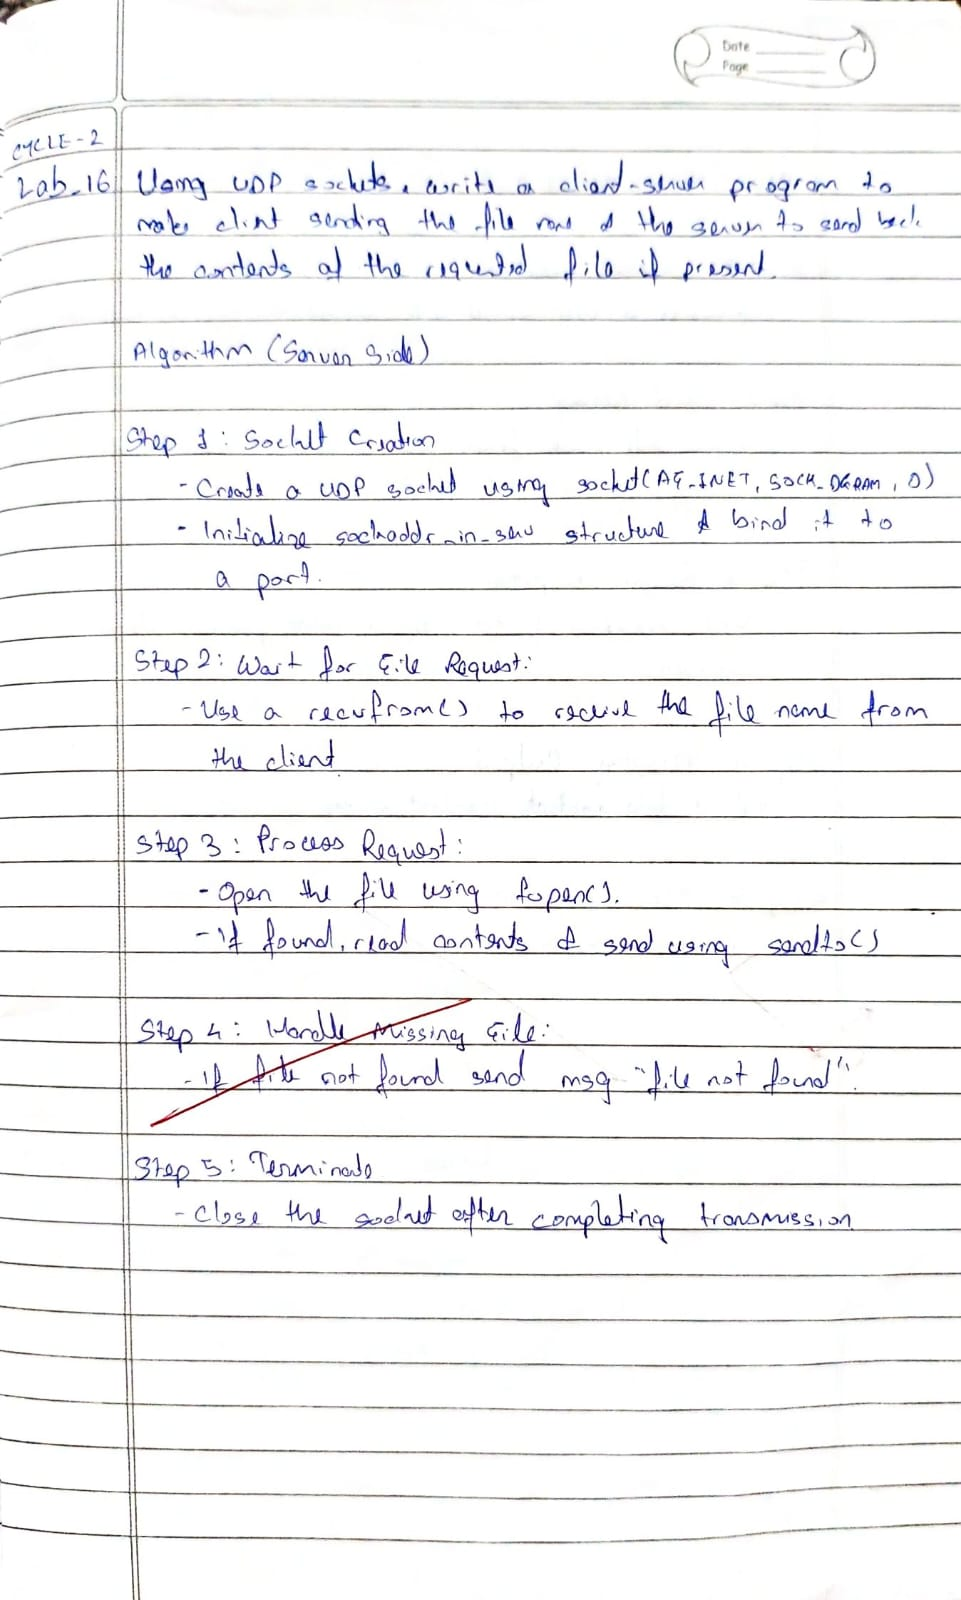 Date
Page
CYCLE-2
Lab-16 Using UDP sockets, write a client-server program to
make client sending the file name & the server to send back
the contents of the requested file if present.
Algorithm (Server Side)
Step 1: Socket Creation
- Create a UDP socket using socket(AF_INET, SOCK_DGRAM, 0)
- Initialize sockaddr_in_serv structure & bind it to
a port.
Step 2: Wait for File Request:
- Use a recvfrom() to receive the file name from
the client
Step 3: Process Request:
- Open the file using fopen().
- If found, read contents & send using sendto()
Step 4: Handle Missing File:
- If file not found send msg "file not found".
Step 5: Terminate
- Close the socket after completing transmission